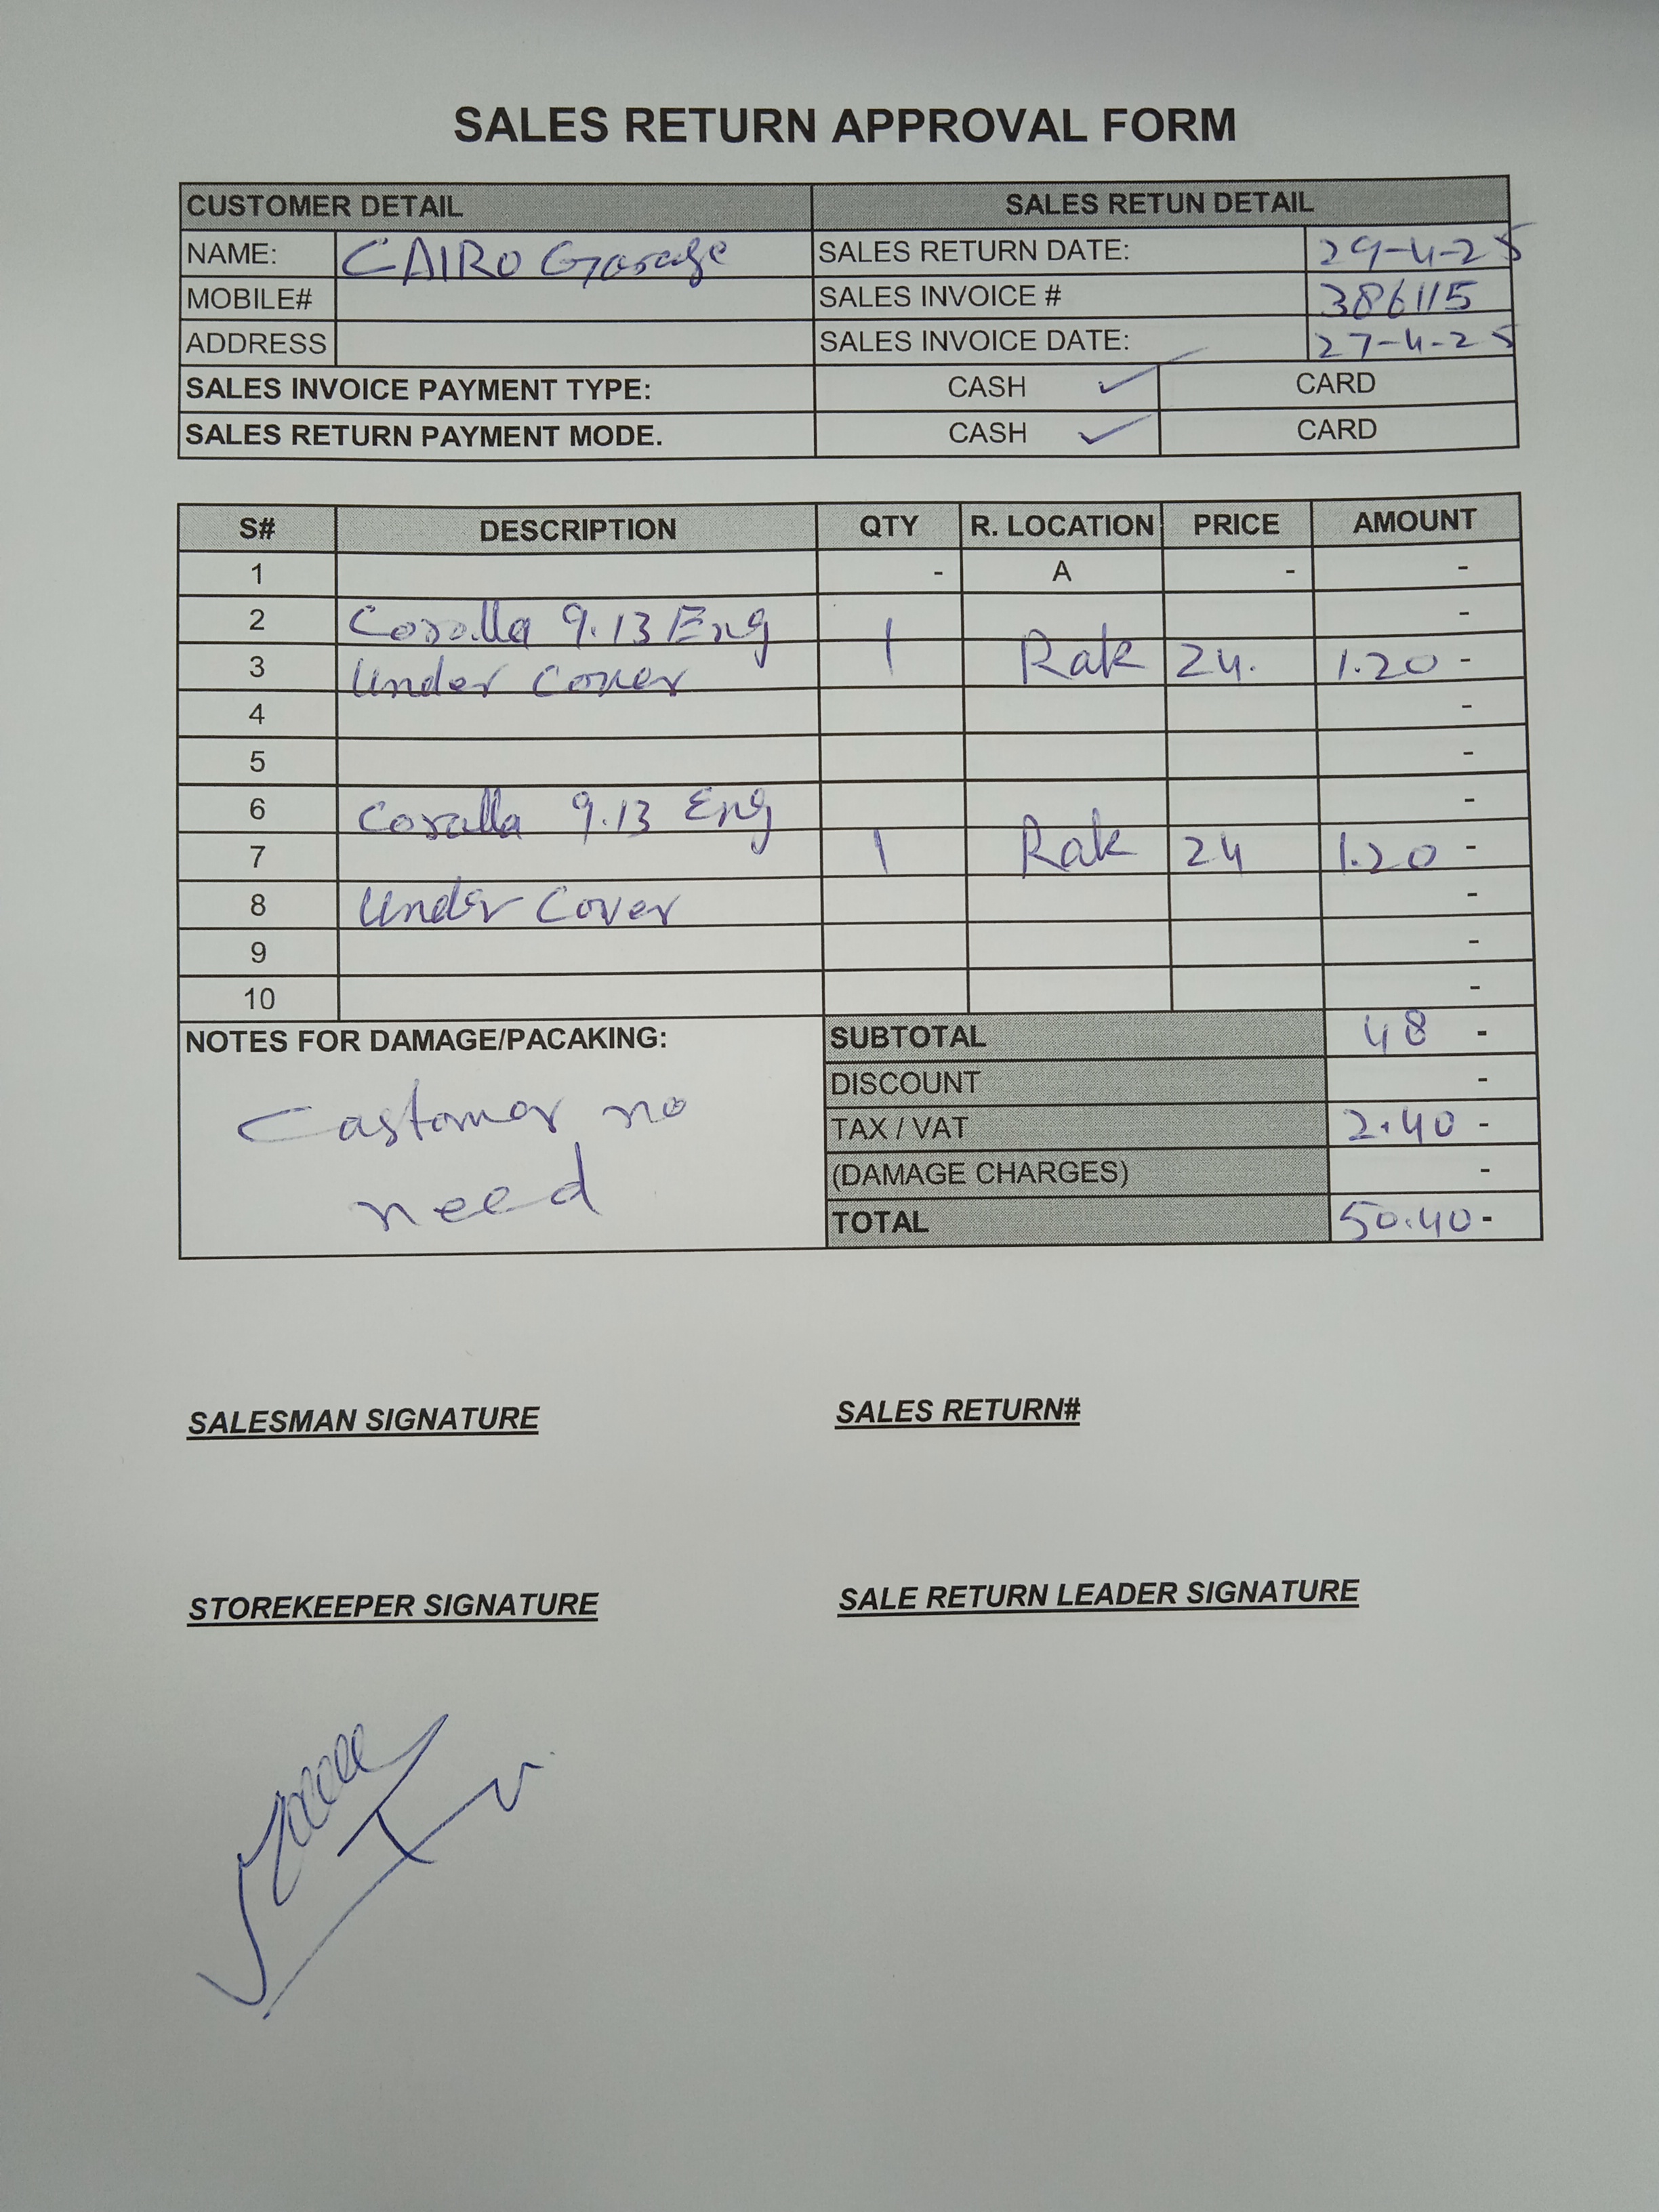 SALES RETURN APPROVAL FORM
CUSTOMER DETAIL SALES RETUN DETAIL
NAME: CAIRO Garage SALES RETURN DATE: 29-4-25
MOBILE# SALES INVOICE # 386115
ADDRESS SALES INVOICE DATE: 27-4-25
SALES INVOICE PAYMENT TYPE: CASH ✓ CARD
SALES RETURN PAYMENT MODE. CASH ✓ CARD
S# DESCRIPTION QTY R. LOCATION PRICE AMOUNT
1 - A - -
2 Coralla 9.13 Eng -
3 Under Cover 1 Rak 24. 1.20 -
4 -
5 -
6 Coralla 9.13 Eng -
7 1 Rak 24 1.20 -
8 Under Cover -
9 -
10 -
NOTES FOR DAMAGE/PACAKING: SUBTOTAL 48 -
DISCOUNT -
Castomer no TAX / VAT 2.40 -
need (DAMAGE CHARGES) -
TOTAL 50.40 -
SALESMAN SIGNATURE SALES RETURN#
STOREKEEPER SIGNATURE SALE RETURN LEADER SIGNATURE